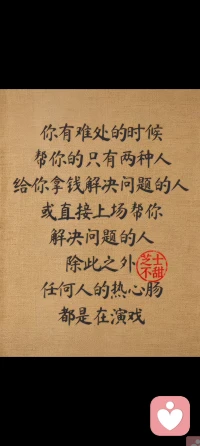 你有难处的时候
帮你的只有两种人
给你拿钱解决问题的人
或直接上场帮你
解决问题的人
除此之外
芝士
不甜
任何人的热心肠
都是在演戏